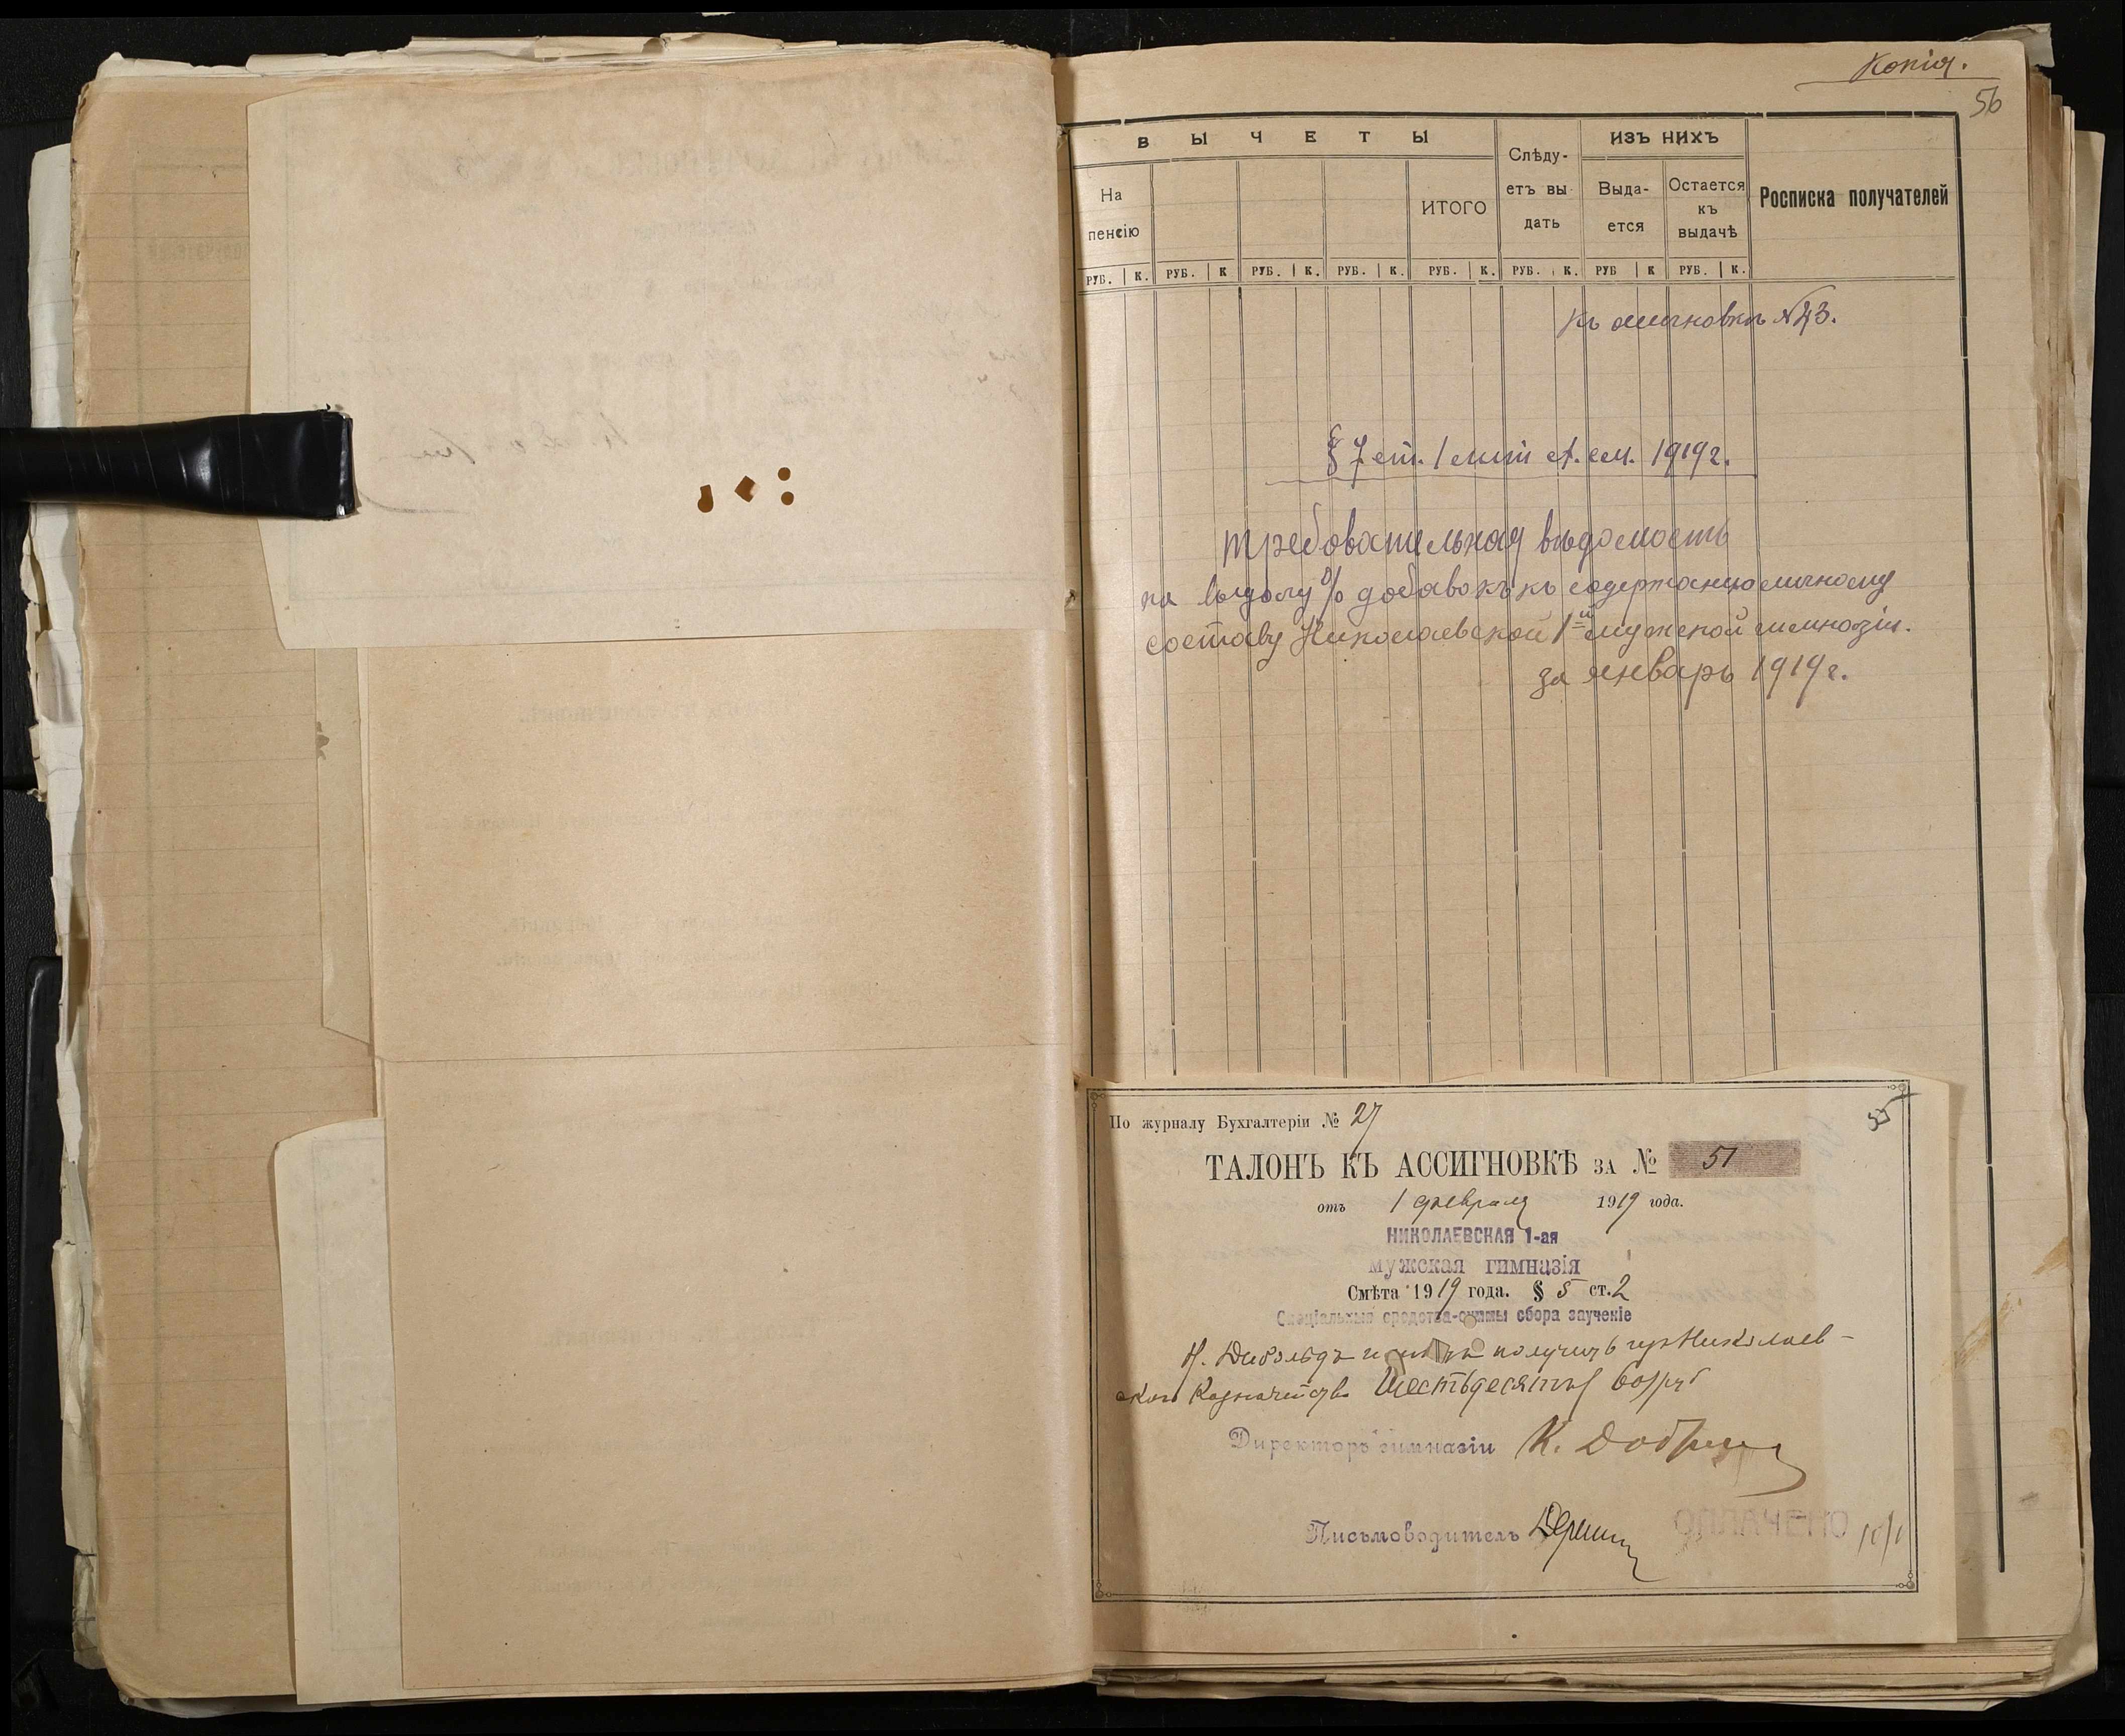 Копія.
56
ВЫЧЕТЫ
Слѣду-
етъ вы-
дать
ИЗЪ НИХЪ
Росписка получателей
На
пенсію
ИТОГО
Выда-
ется
Остается
къ
выдачѣ
РУБ. К. РУБ. К РУБ. К. РУБ. К. РУБ. К. РУБ. К. РУБ К РУБ. К.
Къ ассигновкѣ №43.
§ 7 ст. 1 лит А. см. 1919 г.
Требовательная вѣдомость
на выдачу % добавокъ къ содержанію личному
составу Николаевской 1й мужской гимназіи.
за январь 1919 г.
По журналу Бухгалтеріи № 27
55
ТАЛОНЪ КЪ АССИГНОВКѢ ЗА № 51
отъ 1 февраля 1919 года.
НИКОЛАЕВСКАЯ 1-ая
мужская гимназія
Смѣта 1919 года. § 5 ст. 2
Спеціальныя средства-суммы сбора заученіе
получить изъ Николаев-
скаго Казначейства Шестьдесятъ 60 руб
Директоръ гимназіи К.
Письмоводитель
ОПЛАЧЕНО